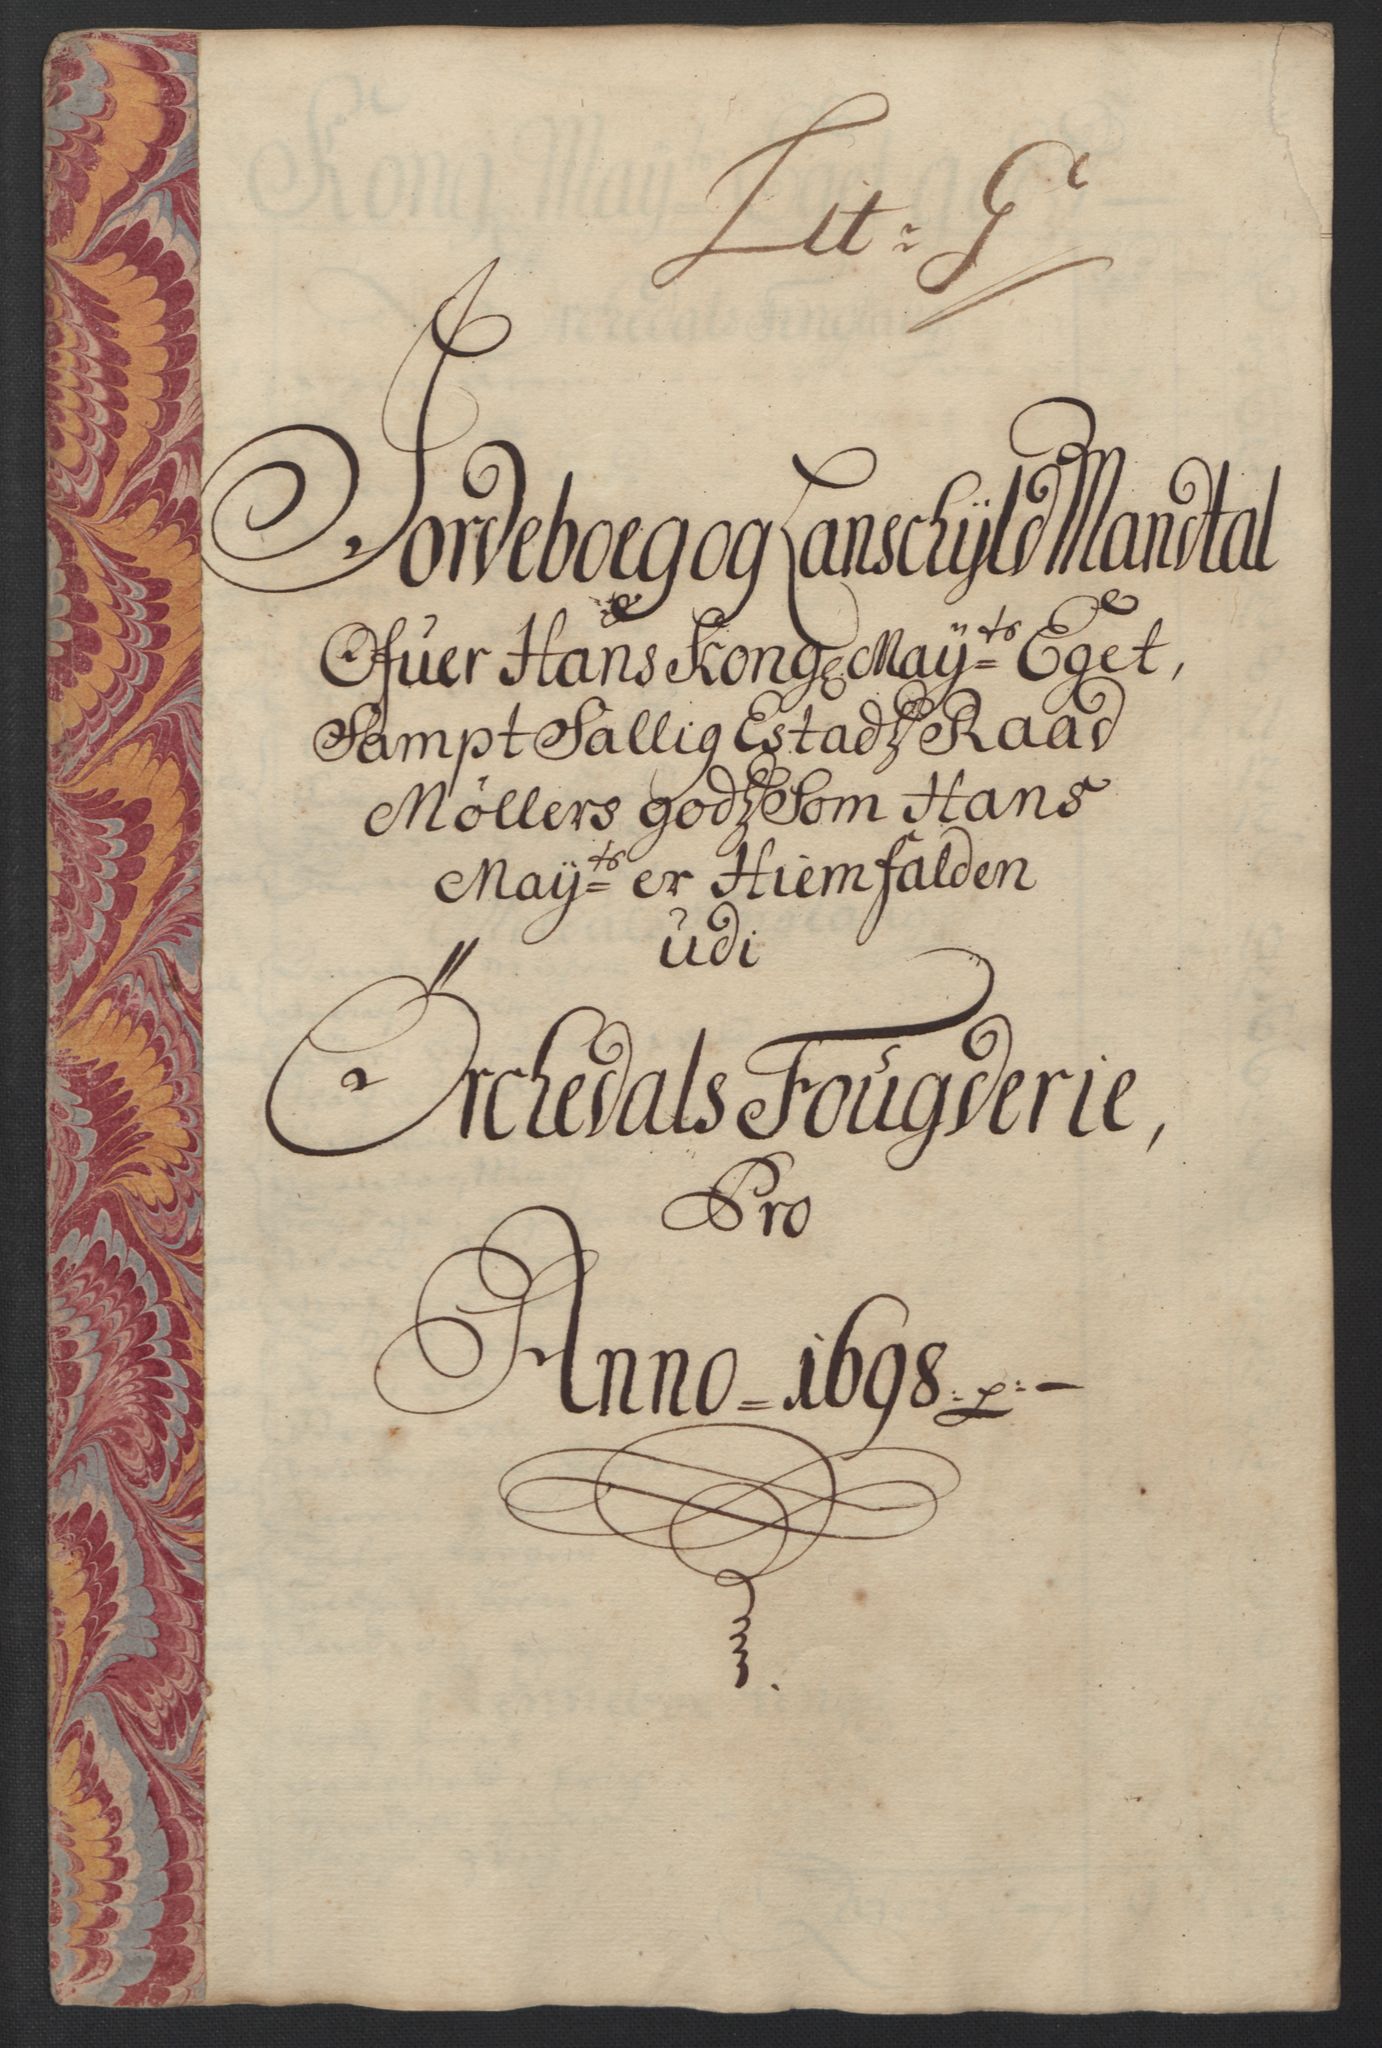 Lit: G
Jordeboeg og Lanschÿld Mandtal
Ofuer Hans Kong: Maÿ:ts Eget,
Sampt Sallig Estadtz Raad
Möllers godtz Som Hans
Maÿ:ts er Hiemfalden
udi
Örchedals Fougderie,
Pro
Anno = 1698.